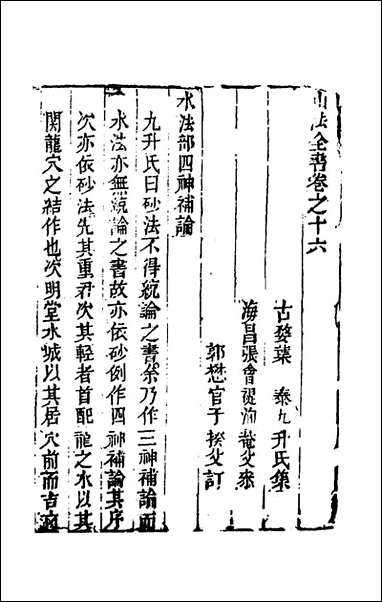 山法全書卷之十六
古婺葉　泰九升氏集
海昌張會禔洵菴父參
郭懋官于揆父訂
水法部四神補論
九升氏曰砂法不得統論之書余乃作三神補論而
水法亦無統論之書故亦依砂例作四神補論其序
次亦依砂法先其重者次其輕者首配龍之水以其
関龍穴之結作也次明堂水城以其居穴前而吉凶